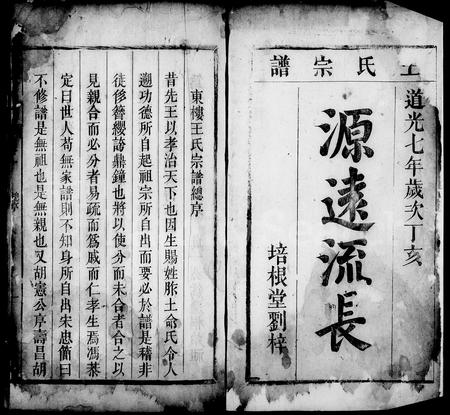 王氏宗譜
道光七年歲次丁亥
源遠流長
培根堂劉梓
東樓王氏宗譜總序
昔先王以孝治天下也因生賜姓胙土命氏令人
遡功德所自起祖宗所自出而要必於譜是稽非
徒侈簪纓誇鼎鐘也將以使分而未合者合之以
見親合而必分者易疏而爲戚而仁孝生焉馮恭
定曰世人苟無家譜則不知身所自出曰
不修譜是無祖也是無親也又胡憲公序壽昌胡